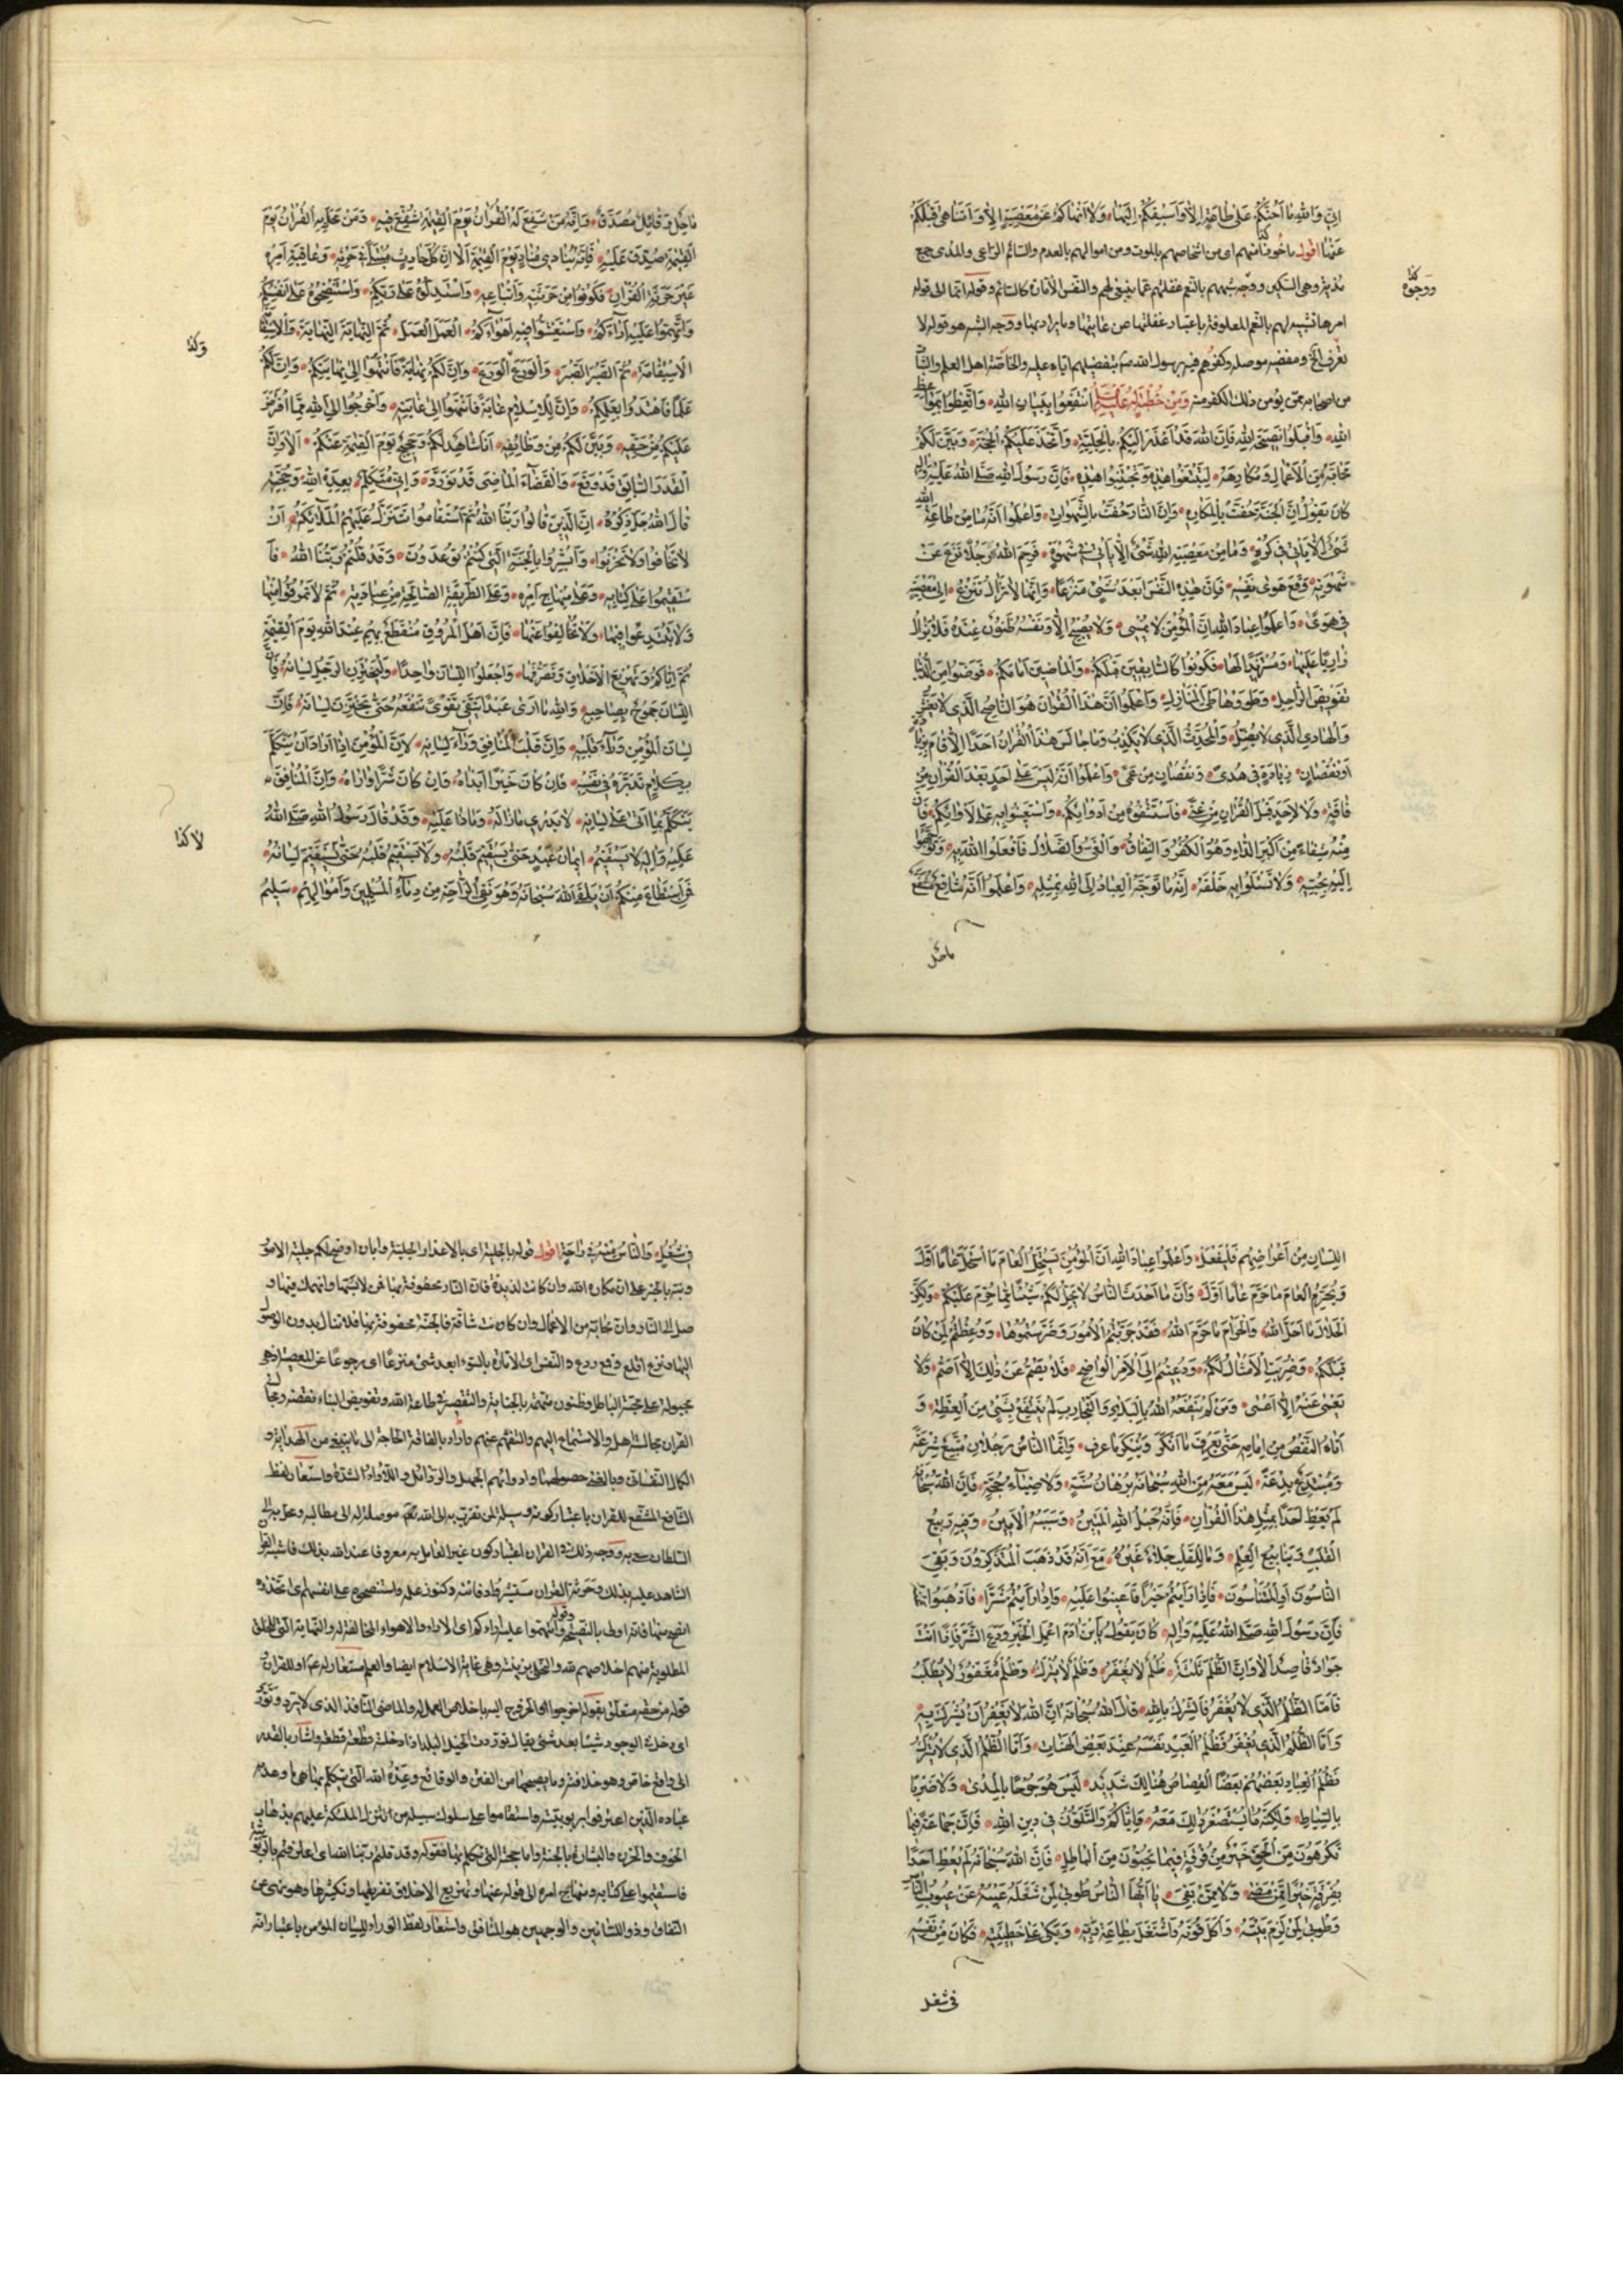 اِنّي وَاللهِ مَا اَحُثُّكُمْ عَلى طَاعَةٍ اِلّا وَاَسْبِقُكُمْ اِلَيْهَا وَلَا اَنْهَاكُمْ عَنْ مَعْصِيَةٍ اِلّا وَاَتَنَاهى قَبْلَكُمْ
عَنْهَا اقول ماخوذا منهم اى من اشخاصهم بالموت ومن اموالهم بالعدم والسائم الراعى والمدى جمع
مدية وهى السكين ووجه شبههم بالنعم غفلتهم عما ينبغى لهم والنفس الامارة كالسائم وقوله انما الى قوله
امرها تشبيه لهم بالنعم المعلوفة باعتبار غفلتها عن غايتها وما يراد بها ووجه الشبه هو قوله لا
تعرف الخ ومفضيه موصله وكفرهم فيه برسول الله صه بتفضيلهم اياه عليه والخاصة اهل العلم والثبات
من اصحابه ممن يؤمن ذلك الكفر منه وَمِنْ خُطْبَةٍ لَهُ عَلَيْهِ السَّلَامُ اِنْتَفِعُوا بِبَيَانِ اللهِ وَاتَّعِظُوا بِمَوَاعِظِ
اللهِ وَاقْبَلُوا نَصِيحَةَ اللهِ فَاِنَّ اللهَ قَدْ اَعْذَرَ اِلَيْكُمْ بِالْجَلِيَّةِ وَاتَّخَذَ عَلَيْكُمُ الْحُجَّةَ وَبَيَّنَ لَكُمْ
مَحَابَّهُ مِنَ الْاَعْمَالِ وَمَكَارِهَهُ لِتَتَّبِعُوا هٰذِهِ وَتَجْتَنِبُوا هٰذِهِ فَاِنَّ رَسُولَ اللهِ صَلَّى اللهُ عَلَيْهِ وَالِهِ
كَانَ يَقُولُ اِنَّ الْجَنَّةَ حُفَّتْ بِالْمَكَارِهِ وَاِنَّ النَّارَ حُفَّتْ بِالشَّهَوَاتِ وَاعْلَمُوا اَنَّهُ مَا مِنْ طَاعَةِ اللهِ
شَيْءٌ اِلّا يَأْتِي فِي كُرْهٍ وَمَا مِنْ مَعْصِيَةِ اللهِ شَيْءٌ اِلّا يَأْتِي فِي شَهْوَةٍ فَرَحِمَ اللهُ رَجُلًا نَزَعَ عَنْ
شَهْوَتِهِ وَقَمَعَ هَوى نَفْسِهِ فَاِنَّ هٰذِهِ النَّفْسَ اَبْعَدُ شَيْءٍ مَنْزَعًا وَاِنَّهَا لَا تَزَالُ تَنْزِعُ اِلى مَعْصِيَةٍ
فِي هَوًى وَاعْلَمُوا عِبَادَ اللهِ اَنَّ الْمُؤْمِنَ لَا يُمْسِي وَلَا يُصْبِحُ اِلّا وَنَفْسُهُ ظَنُونٌ عِنْدَهُ فَلَا يَزَالُ
زَارِيًا عَلَيْهَا وَمُسْتَزِيدًا لَهَا فَكُونُوا كَالسَّابِقِينَ قَبْلَكُمْ وَالْمَاضِينَ اَمَامَكُمْ قَوَّضُوا مِنَ الدُّنْيَا
تَقْوِيضَ الرَّاحِلِ وَطَوَوْهَا طَيَّ الْمَنَازِلِ وَاعْلَمُوا اَنَّ هٰذَا الْقُرْانَ هُوَ النَّاصِحُ الَّذِي لَا يَغُشُّ
وَالْهَادِي الَّذِي لَا يُضِلُّ وَالْمُحَدِّثُ الَّذِي لَا يَكْذِبُ وَمَا جَالَسَ هٰذَا الْقُرْانَ اَحَدٌ اِلّا قَامَ بِزِيَادَةٍ
اَوْ نُقْصَانٍ زِيَادَةٍ فِي هُدًى وَنُقْصَانٍ مِنْ عَمًى وَاعْلَمُوا اَنَّهُ لَيْسَ عَلى اَحَدٍ بَعْدَ الْقُرْانِ مِنْ
فَاقَةٍ وَلَا لِاَحَدٍ قَبْلَ الْقُرْانِ مِنْ غِنًى فَاسْتَشْفُوهُ مِنْ اَدْوَائِكُمْ وَاسْتَعِينُوا بِهِ عَلى لَأْوَائِكُمْ فَاِنَّ
مِنْهُ شِفَاءً مِنْ اَكْبَرِ الدَّاءِ وَهُوَ الْكُفْرُ وَالنِّفَاقُ وَالْغَيُّ وَالضَّلَالُ فَاسْئَلُوا اللهَ بِهِ وَتَوَجَّهُوا
اِلَيْهِ بِحُبِّهِ وَلَا تَسْئَلُوا بِهِ خَلْقَهُ اِنَّهُ مَا تَوَجَّهَ الْعِبَادُ اِلَى اللهِ بِمِثْلِهِ وَاعْلَمُوا اَنَّهُ شَافِعٌ مُشَفَّعٌ
ماحل
ووجوه
مَاحِلٌ وَقَائِلٌ مُصَدَّقٌ وَاِنَّهُ مَنْ شَفَعَ لَهُ الْقُرْانُ يَوْمَ الْقِيٰمَةِ شُفِّعَ فِيهِ وَمَنْ مَحَلَ بِهِ الْقُرْانُ يَوْمَ
الْقِيٰمَةِ صُدِّقَ عَلَيْهِ فَاِنَّهُ يُنَادِي مُنَادٍ يَوْمَ الْقِيٰمَةِ اَلَا اِنَّ كُلَّ حَارِثٍ مُبْتَلًى فِي حَرْثِهِ وَعَاقِبَةِ اَمْرِهِ
غَيْرَ حَرَثَةِ الْقُرْانِ فَكُونُوا مِنْ حَرَثَتِهِ وَاَتْبَاعِهِ وَاسْتَدِلُّوهُ عَلى رَبِّكُمْ وَاسْتَنْصِحُوهُ عَلى اَنْفُسِكُمْ
وَاتَّهِمُوا عَلَيْهِ اٰرَاءَكُمْ وَاسْتَغِشُّوا فِيهِ اَهْوَاءَكُمْ اَلْعَمَلَ الْعَمَلَ ثُمَّ النِّهَايَةَ النِّهَايَةَ وَالْاِسْتِقَامَةَ
الْاِسْتِقَامَةَ ثُمَّ الصَّبْرَ الصَّبْرَ وَالْوَرَعَ الْوَرَعَ وَاِنَّ لَكُمْ نِهَايَةً فَانْتَهُوا اِلى نِهَايَتِكُمْ وَاِنَّ لَكُمْ
عَلَمًا فَاهْتَدُوا بِعَلَمِكُمْ وَاِنَّ لِلْاِسْلَامِ غَايَةً فَانْتَهُوا اِلى غَايَتِهِ وَاخْرُجُوا اِلَى اللهِ مِمَّا افْتَرَضَ
عَلَيْكُمْ مِنْ حَقِّهِ وَبَيَّنَ لَكُمْ مِنْ وَظَائِفِهِ اَنَا شَاهِدٌ لَكُمْ وَحَجِيجٌ يَوْمَ الْقِيٰمَةِ عَنْكُمْ اَلَا وَاِنَّ
الْقَدَرَ السَّابِقَ قَدْ وَقَعَ وَالْقَضَاءَ الْمَاضِيَ قَدْ تَوَرَّدَ وَاِنِّي مُتَكَلِّمٌ بِعِدَةِ اللهِ وَحُجَّتِهِ
قَالَ اللهُ جَلَّ ذِكْرُهُ اِنَّ الَّذِينَ قَالُوا رَبُّنَا اللهُ ثُمَّ اسْتَقَامُوا تَتَنَزَّلُ عَلَيْهِمُ الْمَلٰئِكَةُ اَنْ
لَا تَخَافُوا وَلَا تَحْزَنُوا وَاَبْشِرُوا بِالْجَنَّةِ الَّتِي كُنْتُمْ تُوعَدُونَ وَقَدْ قُلْتُمْ رَبُّنَا اللهُ فَا
سْتَقِيمُوا عَلى كِتَابِهِ وَعَلى مِنْهَاجِ اَمْرِهِ وَعَلَى الطَّرِيقَةِ الصَّالِحَةِ مِنْ عِبَادَتِهِ ثُمَّ لَا تَمْرُقُوا مِنْهَا
وَلَا تَبْتَدِعُوا فِيهَا وَلَا تُخَالِفُوا عَنْهَا فَاِنَّ اَهْلَ الْمُرُوقِ مُنْقَطَعٌ بِهِمْ عِنْدَ اللهِ يَوْمَ الْقِيٰمَةِ
ثُمَّ اِيَّاكُمْ وَتَهْزِيعَ الْاَخْلَاقِ وَتَصْرِيفَهَا وَاجْعَلُوا اللِّسَانَ وَاحِدًا وَلْيَخْزُنِ الرَّجُلُ لِسَانَهُ فَاِنَّ
اللِّسَانَ جَمُوحٌ بِصَاحِبِهِ وَاللهِ مَا اَرى عَبْدًا يَتَّقِي تَقْوًى تَنْفَعُهُ حَتّى يَخْتَزِنَ لِسَانَهُ فَاِنَّ
لِسَانَ الْمُؤْمِنِ وَرَاءَ قَلْبِهِ وَاِنَّ قَلْبَ الْمُنَافِقِ وَرَاءَ لِسَانِهِ لِاَنَّ الْمُؤْمِنَ اِذَا اَرَادَ اَنْ يَتَكَلَّمَ
بِكَلَامٍ تَدَبَّرَهُ فِي نَفْسِهِ فَاِنْ كَانَ خَيْرًا اَبْدَاهُ وَاِنْ كَانَ شَرًّا وَارَاهُ وَاِنَّ الْمُنَافِقَ
يَتَكَلَّمُ بِمَا اَتى عَلى لِسَانِهِ لَا يَدْرِي مَاذَا لَهُ وَمَاذَا عَلَيْهِ وَقَدْ قَالَ رَسُولُ اللهِ صَلَّى اللهُ
عَلَيْهِ وَالِهِ لَا يَسْتَقِيمُ اِيمَانُ عَبْدٍ حَتّى يَسْتَقِيمَ قَلْبُهُ وَلَا يَسْتَقِيمُ قَلْبُهُ حَتّى يَسْتَقِيمَ لِسَانُهُ
فَمَنِ اسْتَطَاعَ مِنْكُمْ اَنْ يَلْقَى اللهَ سُبْحَانَهُ وَهُوَ نَقِيُّ الرَّاحَةِ مِنْ دِمَاءِ الْمُسْلِمِينَ وَاَمْوَالِهِمْ سَلِيمُ
اللِّسَانِ مِنْ اَعْرَاضِهِمْ فَلْيَفْعَلْ وَاعْلَمُوا عِبَادَ اللهِ اَنَّ الْمُؤْمِنَ يَسْتَحِلُّ الْعَامَ مَا اسْتَحَلَّ عَامًا اَوَّلَ
وَيُحَرِّمُ الْعَامَ مَا حَرَّمَ عَامًا اَوَّلَ وَاَنَّ مَا اَحْدَثَ النَّاسُ لَا يُحِلُّ لَكُمْ شَيْئًا مِمَّا حُرِّمَ عَلَيْكُمْ وَلٰكِنَّ
الْحَلَالَ مَا اَحَلَّ اللهُ وَالْحَرَامَ مَا حَرَّمَ اللهُ فَقَدْ جَرَّبْتُمُ الْاُمُورَ وَضَرَّسْتُمُوهَا وَوُعِظْتُمْ بِمَنْ كَانَ
قَبْلَكُمْ وَضُرِبَتِ الْاَمْثَالُ لَكُمْ وَدُعِيتُمْ اِلَى الْاَمْرِ الْوَاضِحِ فَلَا يَصَمُّ عَنْ ذٰلِكَ اِلّا اَصَمُّ وَلَا
يَعْمى عَنْهُ اِلّا اَعْمى وَمَنْ لَمْ يَنْفَعْهُ اللهُ بِالْبَلَاءِ وَالتَّجَارِبِ لَمْ يَنْتَفِعْ بِشَيْءٍ مِنَ الْعِظَةِ وَ
اَتَاهُ النَّقْصُ مِنْ اَمَامِهِ حَتّى يَعْرِفَ مَا اَنْكَرَ وَيُنْكِرَ مَا عَرَفَ وَاِنَّمَا النَّاسُ رَجُلَانِ مُتَّبِعٌ شِرْعَةً
وَمُبْتَدِعٌ بِدْعَةً لَيْسَ مَعَهُ مِنَ اللهِ سُبْحَانَهُ بُرْهَانُ سُنَّةٍ وَلَا ضِيَاءُ حُجَّةٍ فَاِنَّ اللهَ سُبْحَانَهُ
لَمْ يَعِظْ اَحَدًا بِمِثْلِ هٰذَا الْقُرْانِ فَاِنَّهُ حَبْلُ اللهِ الْمَتِينُ وَسَبَبُهُ الْاَمِينُ وَفِيهِ رَبِيعُ
الْقَلْبِ وَيَنَابِيعُ الْعِلْمِ وَمَا لِلْقَلْبِ جَلَاءٌ غَيْرُهُ مَعَ اَنَّهُ قَدْ ذَهَبَ الْمُتَذَكِّرُونَ وَبَقِيَ
النَّاسُونَ اَوِ الْمُتَنَاسُونَ فَاِذَا رَاَيْتُمْ خَيْرًا فَاَعِينُوا عَلَيْهِ وَاِذَا رَاَيْتُمْ شَرًّا فَاذْهَبُوا عَنْهُ
فَاِنَّ رَسُولَ اللهِ صَلَّى اللهُ عَلَيْهِ وَالِهِ كَانَ يَقُولُ يَا ابْنَ اٰدَمَ اعْمَلِ الْخَيْرَ وَدَعِ الشَّرَّ فَاِذَا اَنْتَ
جَوَادٌ قَاصِدٌ اَلَا وَاِنَّ الظُّلْمَ ثَلٰثَةٌ ظُلْمٌ لَا يُغْفَرُ وَظُلْمٌ لَا يُتْرَكُ وَظُلْمٌ مَغْفُورٌ لَا يُطْلَبُ
فَاَمَّا الظُّلْمُ الَّذِي لَا يُغْفَرُ فَالشِّرْكُ بِاللهِ قَالَ اللهُ سُبْحَانَهُ اِنَّ اللهَ لَا يَغْفِرُ اَنْ يُشْرَكَ بِهِ
وَاَمَّا الظُّلْمُ الَّذِي يُغْفَرُ فَظُلْمُ الْعَبْدِ نَفْسَهُ عِنْدَ بَعْضِ الْهَنَاتِ وَاَمَّا الظُّلْمُ الَّذِي لَا يُتْرَكُ
فَظُلْمُ الْعِبَادِ بَعْضِهِمْ بَعْضًا الْقِصَاصُ هُنَالِكَ شَدِيدٌ لَيْسَ هُوَ جَرْحًا بِالْمُدى وَلَا ضَرْبًا
بِالسِّيَاطِ وَلٰكِنَّهُ مَا يُسْتَصْغَرُ ذٰلِكَ مَعَهُ وَاِيَّاكُمْ وَالتَّلَوُّنَ فِي دِينِ اللهِ فَاِنَّ جَمَاعَةً فِيمَا
تَكْرَهُونَ مِنَ الْحَقِّ خَيْرٌ مِنْ فُرْقَةٍ فِيمَا تُحِبُّونَ مِنَ الْبَاطِلِ فَاِنَّ اللهَ سُبْحَانَهُ لَمْ يُعْطِ اَحَدًا
بِفُرْقَةٍ خَيْرًا مِمَّنْ مَضى وَلَا مِمَّنْ بَقِيَ يَا اَيُّهَا النَّاسُ طُوبى لِمَنْ شَغَلَهُ عَيْبُهُ عَنْ عُيُوبِ النَّاسِ
وَطُوبى لِمَنْ لَزِمَ بَيْتَهُ وَاَكَلَ قُوتَهُ وَاشْتَغَلَ بِطَاعَةِ رَبِّهِ وَبَكى عَلى خَطِيئَتِهِ فَكَانَ مِنْ نَفْسِهِ
فى شغل
فِي شُغُلٍ وَالنَّاسُ مِنْهُ فِي رَاحَةٍ اقول قوله بالجلية اى بالاعذار الجلية وابان اوضح لكم جلية الامور
ونبه بالخبر على ان مكاره الله وان كانت لذيذة فان النار محفوفة بها فمن لابسها وانهمك فيها و
صل الى النار وان محابه من الاعمال وان كانت شاقة فالجنة محفوفة بها فلا تنال بدون الوصول
اليها ونزع اقلع وقمع ردع والنفس اى الامارة بالسوء ابعد شئ منزعا اى رجوعا عن المعصية اذ هى
مجبولة على محبة الباطل وظنون متهمة بالخيانة والتقصير فى طاعة الله وتقويض البناء نقضه ومجالسة
القران مجالسة اهل والاستماع اليهم والتفهم عنهم واراد بالفاقة الحاجة الى ما ينبغى من الهداية و
الكمال النفسانى وبالغنى حصولها وادوائهم الجهل والرذائل واللأواء الشدة واستعار لفظ
الشافع المشفع للقران باعتبار كونه وسيلة لمن تقرب به الى الله تعه موصلة له الى مطالبه ومحل به الى
السلطان سعى به ووجه ذلك فى القران اعتبار كون غير العامل به معروفا عند الله بذلك فاشبه القران
الشاهد عليه بذلك وحرثة القران مستثيروا دفائنه وكنوز علمه واستنصحوه على انفسكم اى اتخذوه
انصح منها فانه اولى بالنصيحة وقوله واتهموا عليه اراءكم اى الاراء والاهواء المخالفة له والنهاية التى للخلق
المطلوبة منهم اخلاصهم لله والتحلى بزينته وهى غاية الاسلام ايضا والعلم مستعار له عم او للقران و
قوله من حقه متعلق بقوله اخرجوا اى الخروج اليه باخلاص العمل له والماضى النافذ الذى لا يرد وتورد
اى دخل فى الوجود شيئا بعد شئ يقال توردت الخيل البلد اذا دخلته قطعة قطعة واشار بالقدر
الى واقع خاص وهو خلافته وما يصحبها من الفتن والوقائع وعدة الله التى تتكلم بها هى ما وعد به
عباده الذين اعترفوا بربوبيته واستقاموا على سلوك سبيله من تنزل الملئكة عليهم بذهاب
الخوف والحزن والبشارة بالجنة واما حجته التى تكلم بها فقوله وقد قلتم ربنا الله اى اعترفتم بالربوبية
فاستقيموا على كتابه ومنهاج امره الى قوله عنها وتهزيع الاخلاق تفريقها وتكثيرها وهو نهى عن
النفاق وذو اللسانين والوجهين هو المنافق واستعار لفظ الوراء للسان المؤمن باعتبار انه